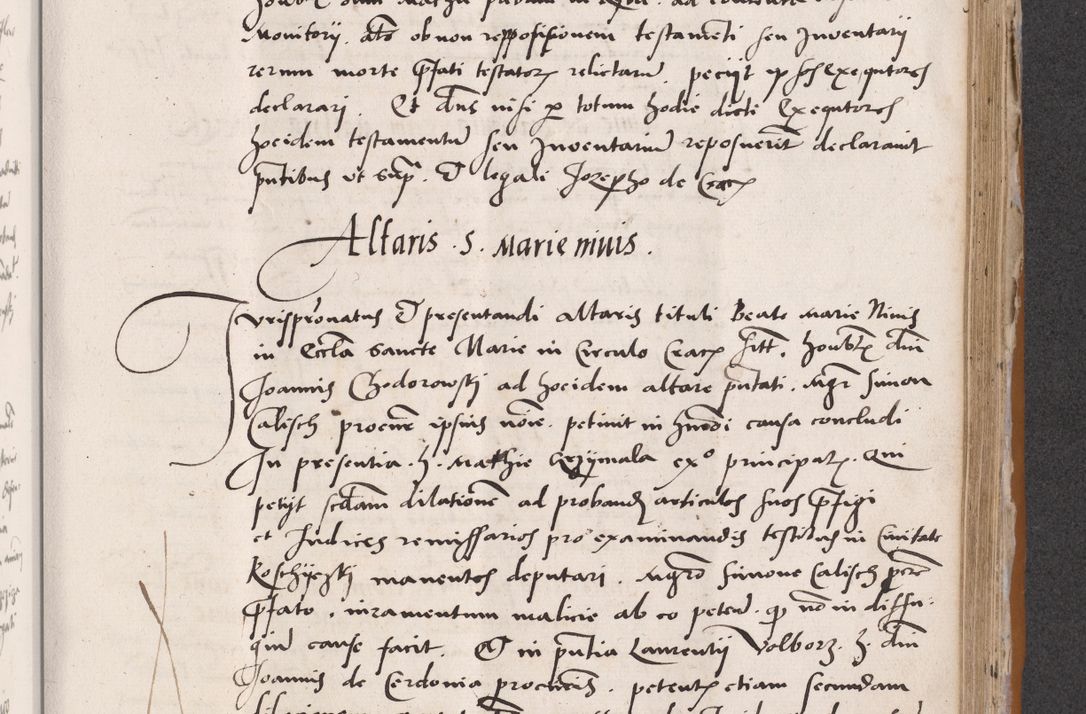 Monitorij. ob non repposicionem testamenti seu Inventarij
rerum morte pfati testatoris relictarum peciit exequtores
declarari Et dns nisi p totum hodie dicti Exequtores
hoeidem testamentum seu Inventarium reposuerint declaravit
pntibus ut sup. Et legali Jozepho de Crac
Altaris . S. Marie nivis .
Jurispronatus Et presentandi altaris tituli Beate Marie Nivis
in Eccla Sancte Marie in Circulo Crac sitt. honbl dni
Joannis Chodorowskj ad hoeidem altare pntati . Mgr Simon
Calisch procure ipsius noie . petivit in hmodi causa concludi
In presentia . h . Mathie Grzymala ex⁰ principat. Qui
petijt scdam dilationem ad proband articulos suos pfigi
et Judices remissarios pro examinandis testibus in Civitate
Koschyczkj manentes deputari . Mgro Simone Calisch
pfato . iuramentum malicie ab eo peten . no in diffu-
gium cause facit . Et in pntia Laurentij Volborz . h . dni
Joannis de Cerdonia procuris . petente etiam secundam